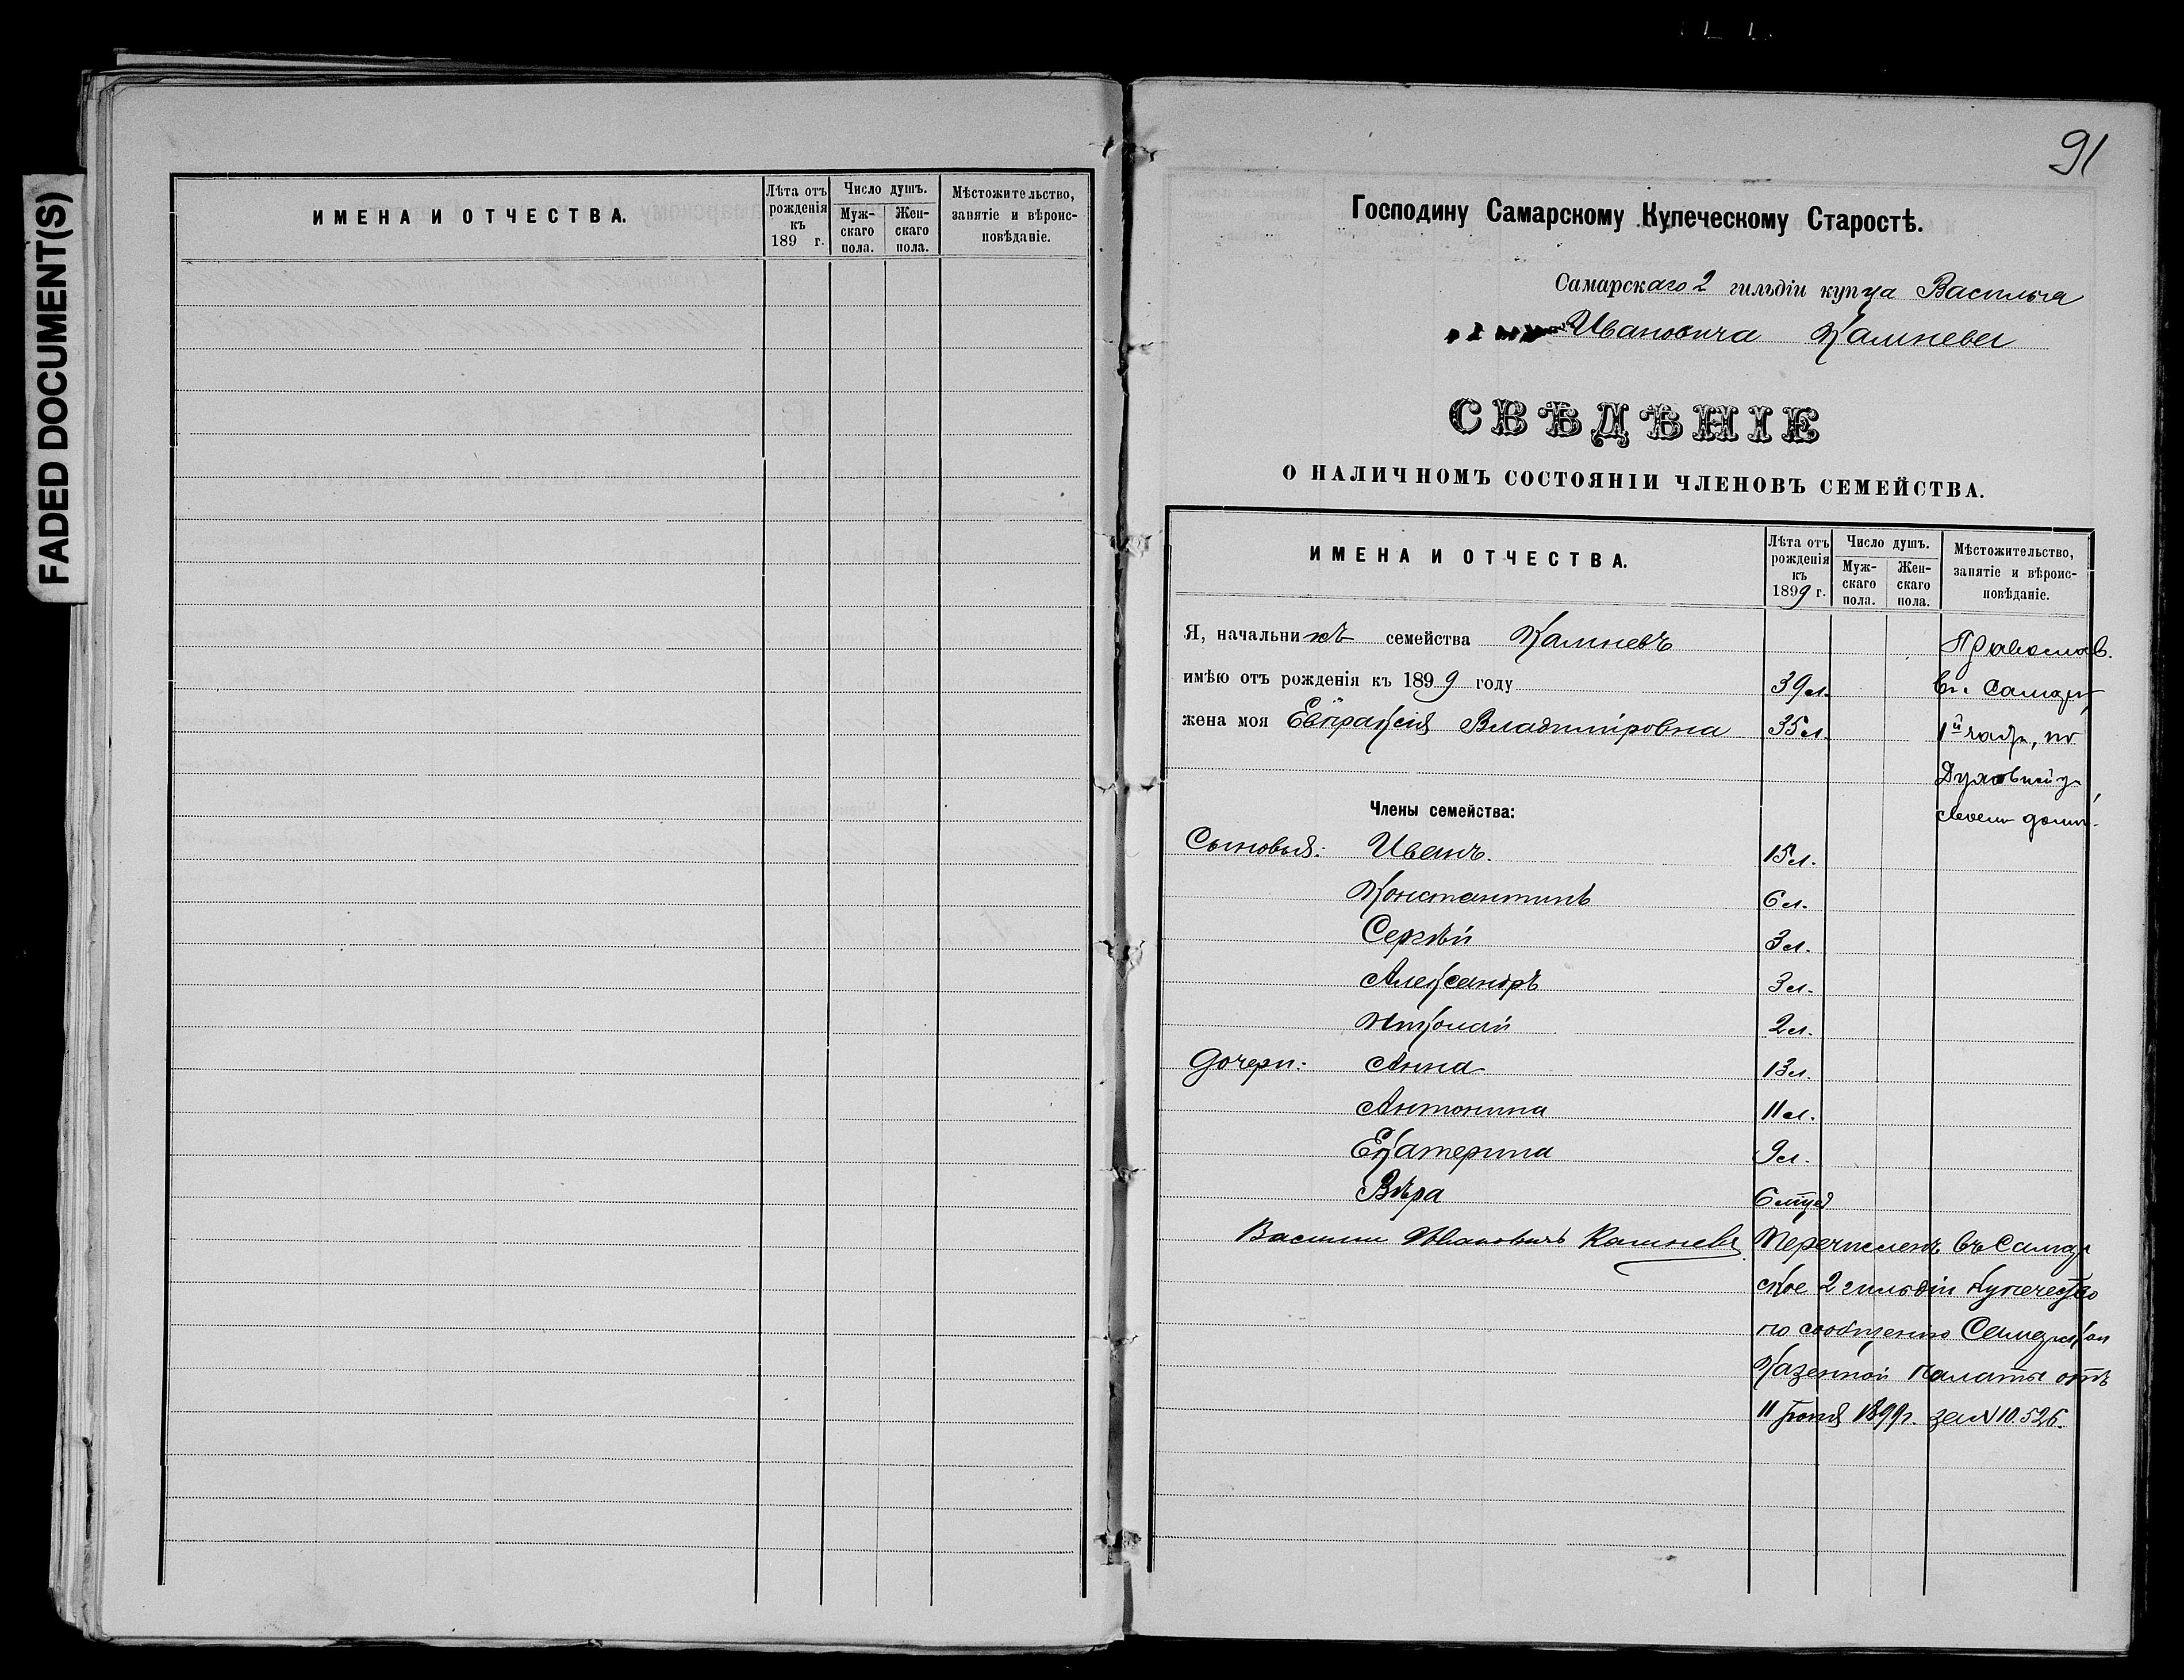 FADED DOCUMENT(S)
ИМЕНА И ОТЧЕСТВА.
Лѣта отъ рожденія къ 189 г.
Число душъ.
Мужскаго пола.
Женскаго пола.
Мѣстожительство, занятіе и вѣроисповѣданіе.
91
Господину Самарскому Купеческому Старостѣ.
Самарскаго 2 гильдіи купца Василья
Ивановича Камнева
СВѢДѢНІЕ
О НАЛИЧНОМЪ СОСТОЯНІИ ЧЛЕНОВЪ СЕМЕЙСТВА.
ИМЕНА И ОТЧЕСТВА.
Лѣта отъ рожденія къ 1899 г.
Число душъ.
Мужскаго пола.
Женскаго пола.
Мѣстожительство, занятіе и вѣроисповѣданіе.
Я, начальникъ семейства Камневъ Православ.
имѣю отъ рожденія къ 1899 году 39 л. въ г. Самарѣ,
жена моя Евпраксія Владимировна 35 л. 1й части, по
Духовной ул.,
Члены семейства: своемъ домѣ.
Сыновья: Иванъ. 15 л.
Константинъ 6 л.
Сергѣй 3 л.
Александръ 3 л.
Николай 2 л.
Дочери: Анна 13 л.
Антонина 11 л.
Екатерина 9 л.
Вѣра 6
Василий Ивановичъ Камневъ Перечисленъ въ Самар
ское 2 гильдіи купечество
по сообщенію Самарской
Казенной палаты отъ
11 1899 г. за N 10.526.